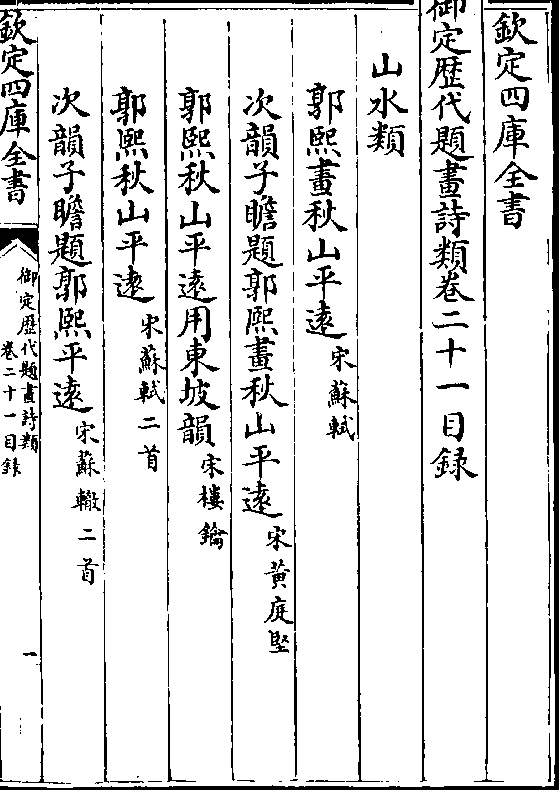 欽定四庫全書
御定歷代題畫詩類卷二十一目録
山水類
郭熙畫秋山平逺 宋蘇軾
次韻子瞻題郭熙畫秋山平逺 宋黃庭堅
郭熙秋山平逺用東坡韻 宋樓鑰
郭熙秋山平逺 宋蘇軾二首
次韻子瞻題郭熙平逺 宋蘇轍二首
欽定四庫全書
御定歷代題畫詩類
卷二十一目録
一